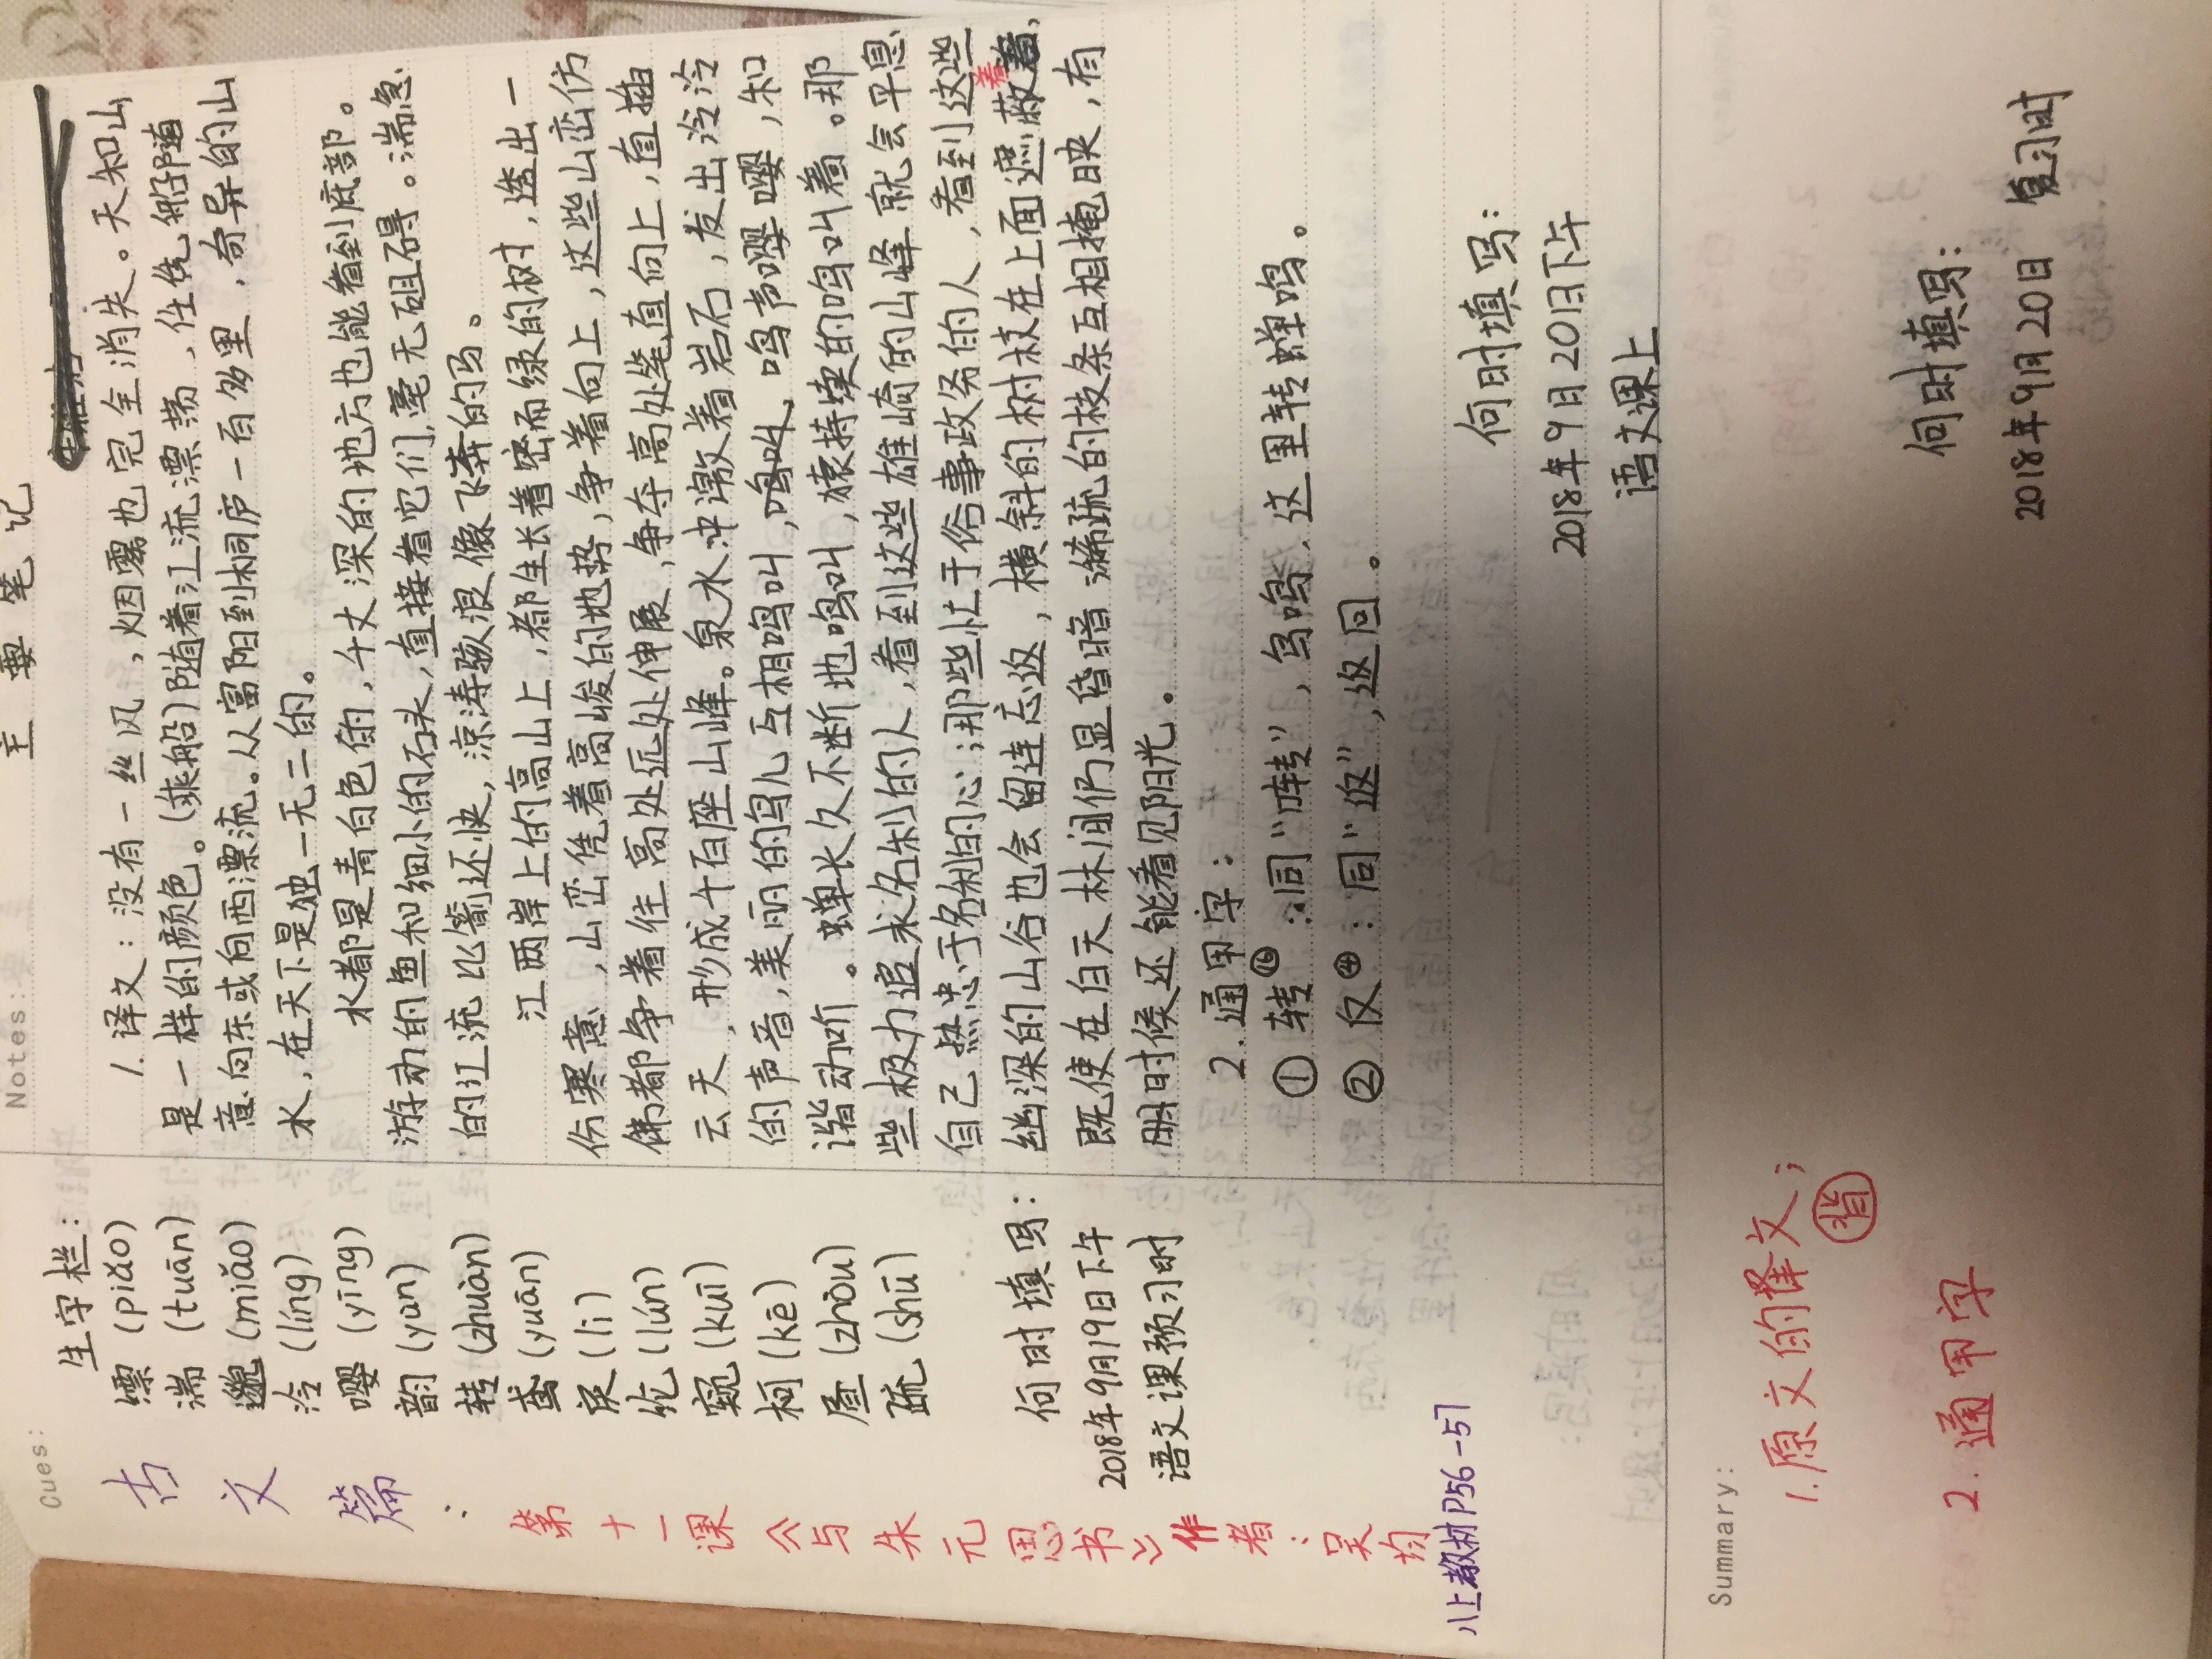 Cues:
古文篇：
第十一课《与朱元思书》作者：吴均
八上教材P56-57
生字栏：
缥(piǎo)
湍(tuān)
邈(miǎo)
泠(líng)
嘤(yīng)
韵(yùn)
转(zhuàn)
鸢(yuān)
戾(lì)
纶(lún)
窥(kuī)
柯(kē)
昼(zhòu)
疏(shū)
何时填写：
2018年9月19日下午
语文课预习时
Notes:
主要笔记
1.译文：没有一丝风，烟雾也完全消失。天和山
是一样的颜色。(乘船)随着江流漂荡，任凭船随
意向东或向西漂流。从富阳到桐庐一百多里，奇异的山
水，在天下是独一无二的。
水都是青白色的，千丈深的地方也能看到底部。
游动的鱼和细小的石头，直接看它们，毫无阻碍。湍急
的江流比箭还快，凉涛骇浪像飞奔的马。
江两岸上的高山上，都生长着密而绿的树，透出一
份寒意，山峦凭着高峻的地势，争着向上，这些山峦仿
佛都争着往高处远处伸展，争夺高处笔直向上，直插
云天，形成千百座山峰。泉水冲激着岩石，发出泠泠
的声音，美丽的鸟儿互相鸣叫，鸣叫，鸣声嘤嘤，和
谐动听。蝉长久不断地鸣叫，猿持续的鸣叫着。那
些极力追求名利的人，看到这些雄崎的山峰就会平息
自己热忠于名利的心；那些忙于俗事政务的人，看到这些
幽深的山谷也会留连忘返，横斜的树枝在上面遮蔽着，
既使在白天林间仍显昏暗 稀疏的枝条互相掩映，有
时候还能看见阳光。
2.通甲字：
① 转⑯：同“啭”，鸟鸣，这里转蝉鸣。
② 反④：同“返”，返回。
何时填写：
2018年9月20日下午
语文课上
Summary:
1.原文的译文；
背
2.通甲字
何时填写：
2018年9月20日 复习时